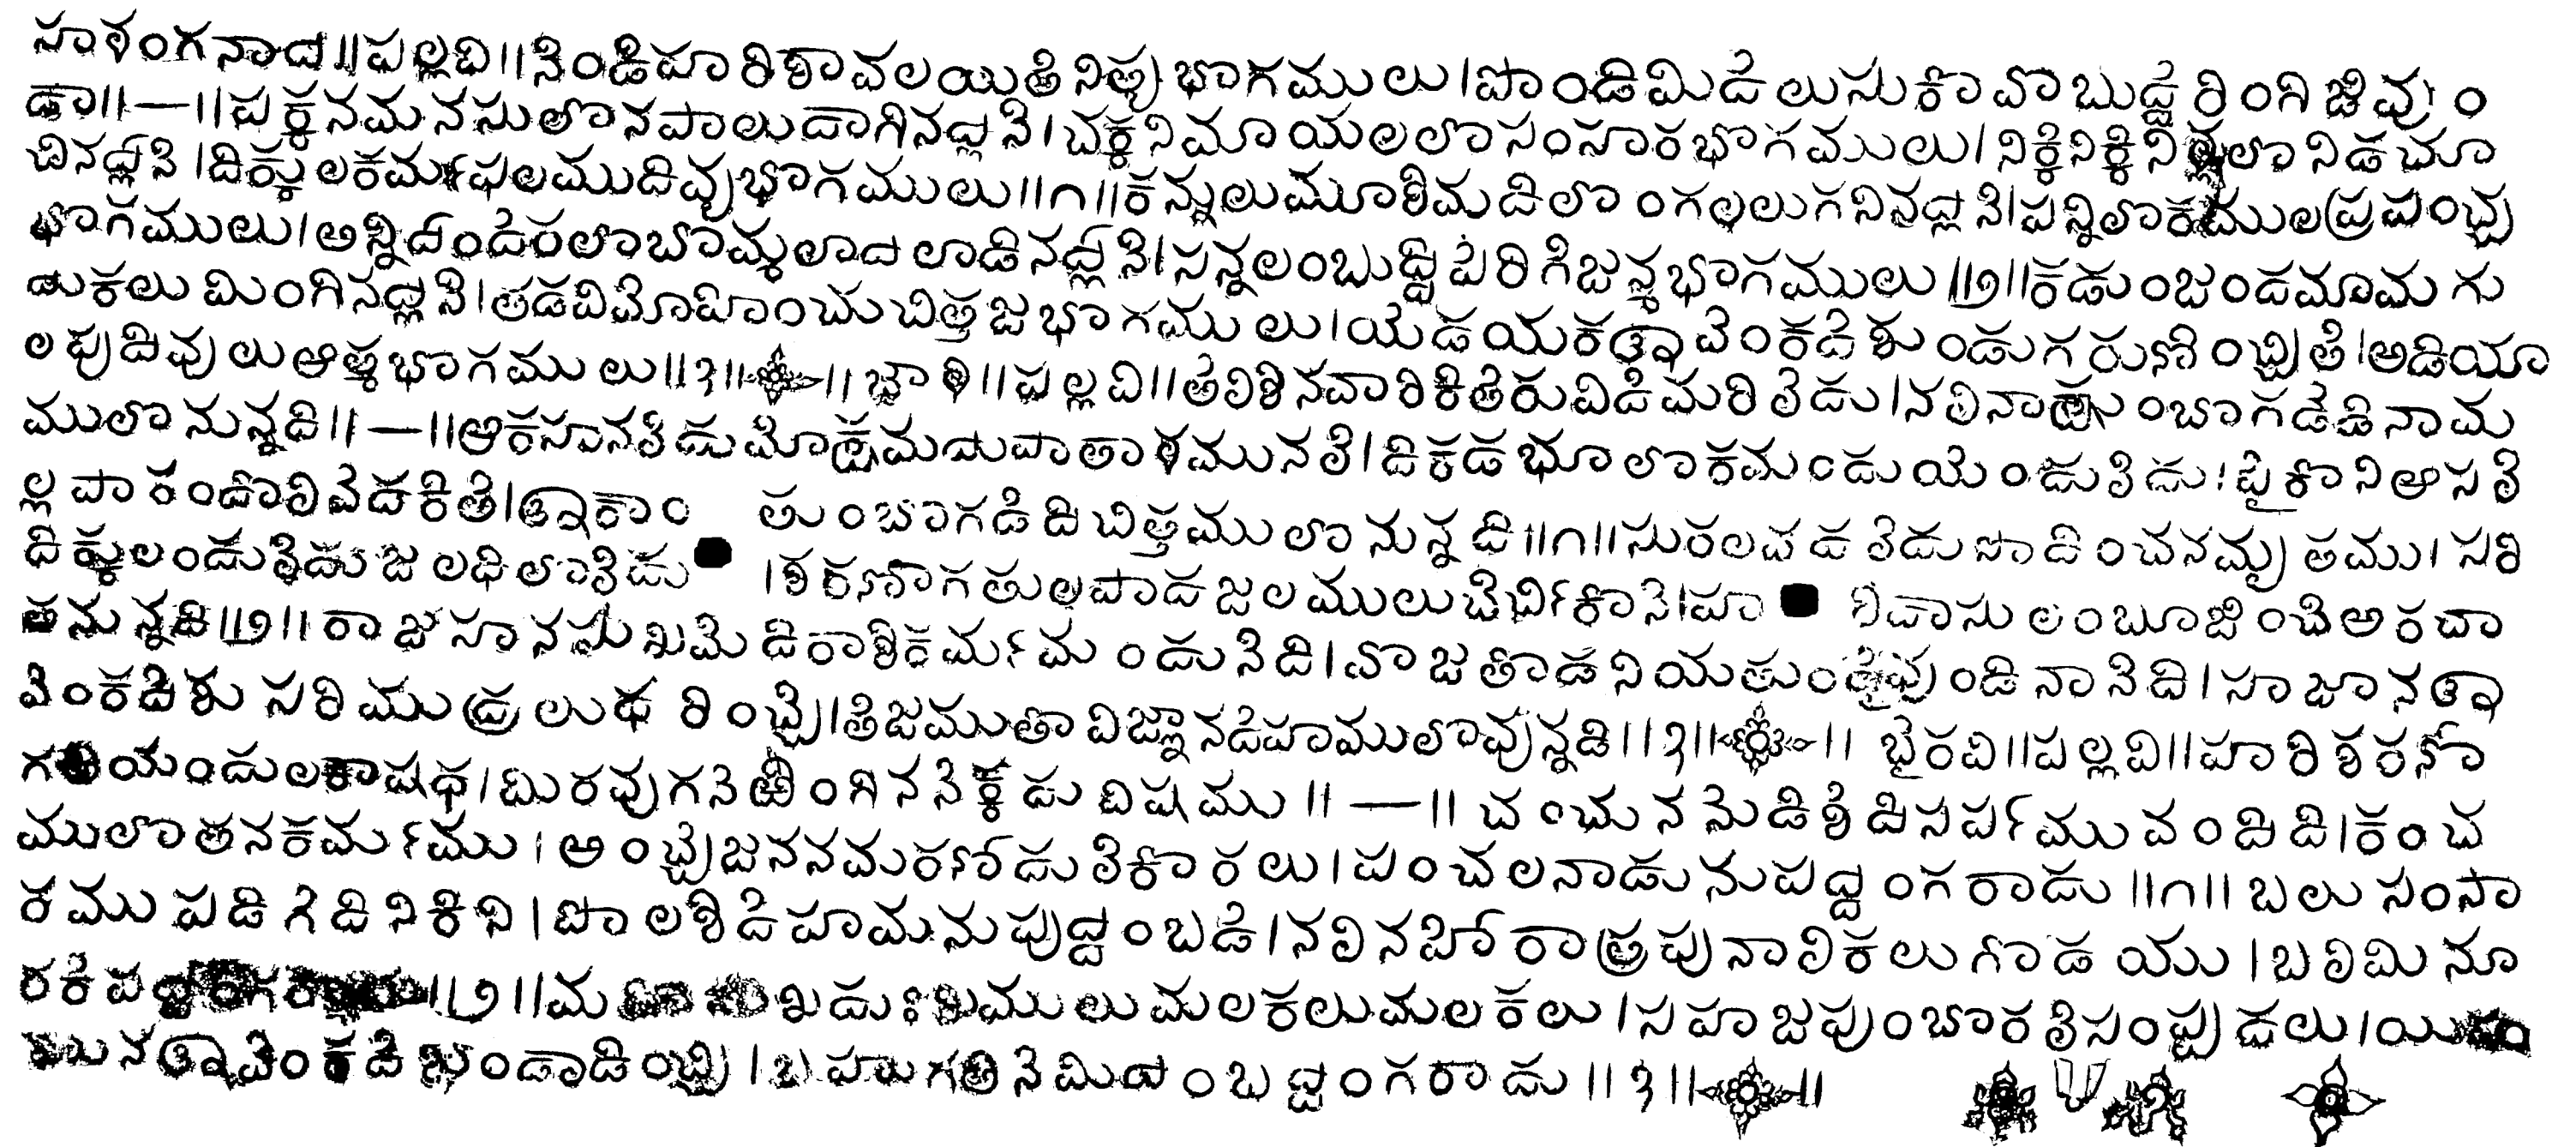 సాళంగనాట॥పల్లవి॥నిండిహరిఠావలయితి నిత్య భొగములు।పొండిమిడెలుసుకొవొ బుద్దెరింగి జీవుం
డా॥—॥పక్కనమనసులొనపాలుదాగినట్లనె।చక్కనిమాయలలొసంసారభొగములు।నిక్కినిక్కినిళ్లలొనిడచూ
చినట్లనె।దిక్కులకర్మఫలముదివ్యభొగములు॥౧॥కన్నులుమూశిమదిలొంగలలుగనినట్లనె।పన్నిలొకములప్రపంచ
భొగములు।అన్నిటందెరలొబొమ్మలాటలాడినట్లనె।సన్నలంబుద్ధిపెరిగెజన్మభొగములు॥౨॥కడుంజందమామగు
టుకలు మింగినట్లనె।తడవిమోహించుచిత్తజభొగములు।యెడయకశ్రీవెంకటేశుండుగరుణించ్చితె।అడియా
లపుదివులుఆత్మభొగములు॥౩॥ ॥జౌళి॥పల్లవి॥తెలిశినవారికితెరువిదెమరిలెదు।నలినాక్షుంబొగడెడినామ
ములొనున్నది॥—॥ఆకసాననలెదుమోక్షమటుపాతాళముననలె।దికడభూలొకమందుయెందులెదు।పైకొనిఆసలె
ల్లపాకందొలివెదకితె।శ్రీకాం తుంబొగడెదిచిత్తములొనున్నది॥౧॥సురలవడలెదుసొదించనమృతము।సరి
దిక్కులందులెదుజలధిలొలెదు ।శరణాగతులపాదజలములుచేర్చికొనె।హ రిదాసులంబూజించెఅరచా
తనున్నది॥౨॥రాజసానసుఖమెదిరాశికర్మమందునెది।వొజతొడనియతుండైవుండినానెది।సాజానశ్రీ
వెంకటేశుసరిముద్రలుధరించ్చె।తేజముతొవిజ్ఞానదేహములొవున్నది॥౩॥ ॥భైరవి॥పల్లవి॥హరిశరణో
గతియందులకౌషధ।మిరవుగనెఱింగిననెక్కదువిషము॥—॥చంచునమెడిశేదిసర్పమువందిది।కంచ
ములొతనకర్మము।అంచ్చెజననమరణోదులెకొరలు।పంచలనాడునుపట్టంగరాదు॥౧॥బలుసంసా
రముపడిగెదినికిని।పొలశేదేహమనుపుట్టంబడె।నలినహోరాత్రపునాలికలుగొడయు।బలిమినూ
రకెప ॥౨॥మ ఖదుఃఖములుమలకలుమలకలు।సహజపుంబొరలెసంపుటలు।యి
మునశ్రీవెంకటేశుండాడించ్చు।బహుగతినెమిటంబట్టంగరాదు॥౩॥ ॥